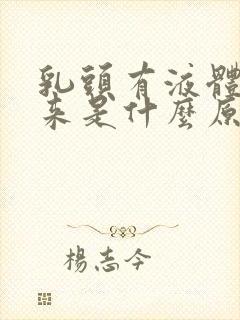 乳頭有液體
来是什麼原
楊志今